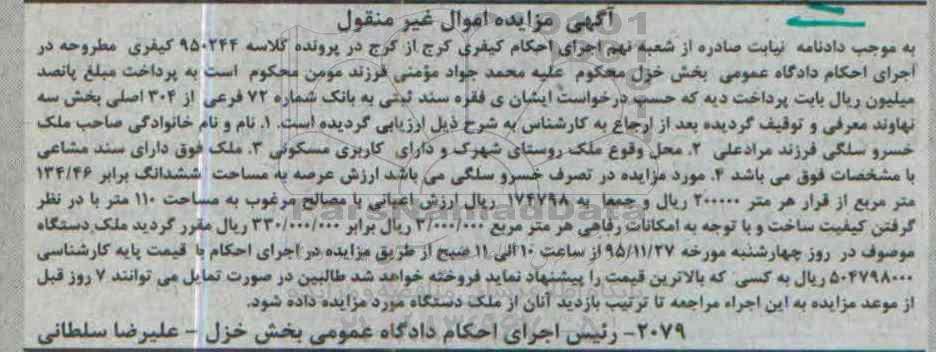 آگهی مزایده اموال غیر منقول
به موجب دادنامه نیابت صادره از شعبه نهم اجرای احکام کیفری کرج از کرج در پرونده کلاسه ۹۵۰۲۴۴ کیفری مطروحه در
اجرای احکام دادگاه عمومی بخش خزل محکوم علیه محمد جواد مؤمنی فرزند مومن محکوم است به پرداخت مبلغ پانصد
میلیون ریال بابت پرداخت دیه که حسب درخواست ایشان ی فقره سند ثبتی به بانک شماره ۷۲ فرعی از ۳۰۴ اصلی بخش سه
نهاوند معرفی و توقیف گردیده بعد از ارجاع به کارشناس به شرح ذیل ارزیابی گردیده است. ۱. نام و نام خانوادگی صاحب ملک
خسرو سلگی فرزند مرادعلی ۲. محل وقوع ملک روستای شهرک و دارای کاربری مسکونی ۳. ملک فوق دارای سند مشاعی
با مشخصات فوق می باشد ۴. مورد مزایده در تصرف خسرو سلگی می باشد ارزش عرصه به مساحت ششدانگ برابر ۱۳۴/۴۶
متر مربع از قرار هر متر ۲۰۰۰۰۰ ریال و جمعا به ۱۷۴۷۹۸ ریال ارزش اعیانی با مصالح مرغوب به مساحت ۱۱۰ متر با در نظر
گرفتن کیفیت ساخت و با توجه به امکانات رفاهی هر متر مربع ۳/۰۰۰/۰۰۰ ریال برابر ۳۳۰/۰۰۰/۰۰۰ ریال مقرر گردید ملک دستگاه
موصوف در روز چهارشنبه مورخه ۹۵/۱۱/۲۷ از ساعت ۱۰ الی ۱۱ صبح از طریق مزایده در اجرای احکام با قیمت پایه کارشناسی
۵۰۴۷۹۸۰۰۰ ریال به کسی که بالاترین قیمت را پیشنهاد نماید فروخته خواهد شد طالبین در صورت تمایل می توانند ۷ روز قبل
از موعد مزایده به این اجراء مراجعه تا ترتیب بازدید آنان از ملک دستگاه مورد مزایده داده شود.
۲۰۷۹- رئیس اجرای احکام دادگاه عمومی بخش خزل - علیرضا سلطانی
ParsNamadData